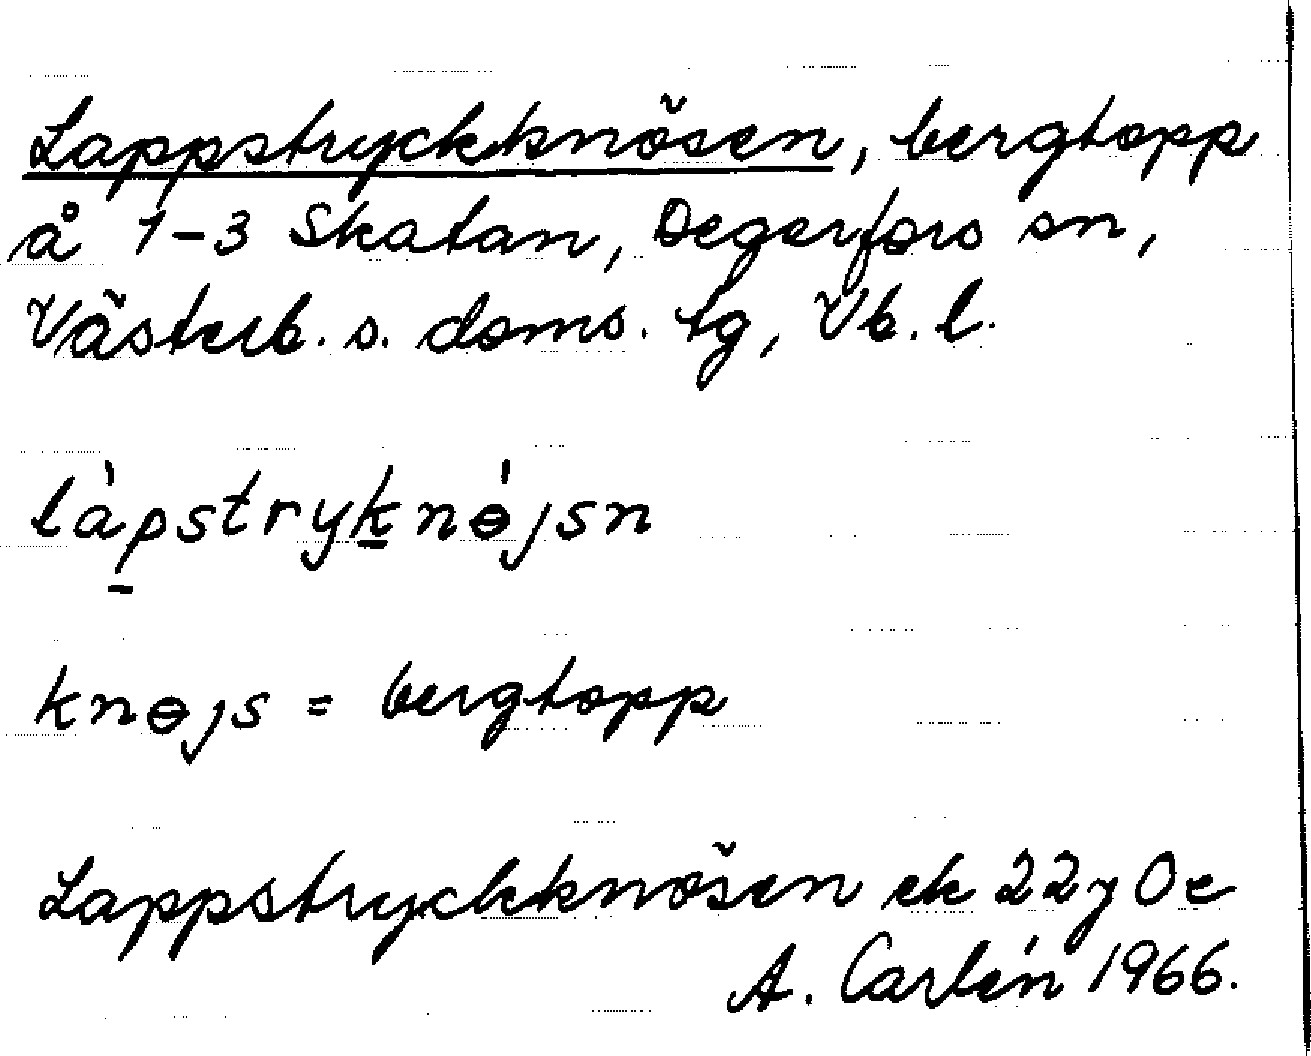 Lappstryckknösen, bergtopp
å 1-3 Skatan, Degerfors sn,
Västerb. s. doms. tg, Vb. l.
làpstryknɵ́jsn
knɵjs = bergtopp
Lappstryckknösen ek 22J0e
A. Carlén 1966.